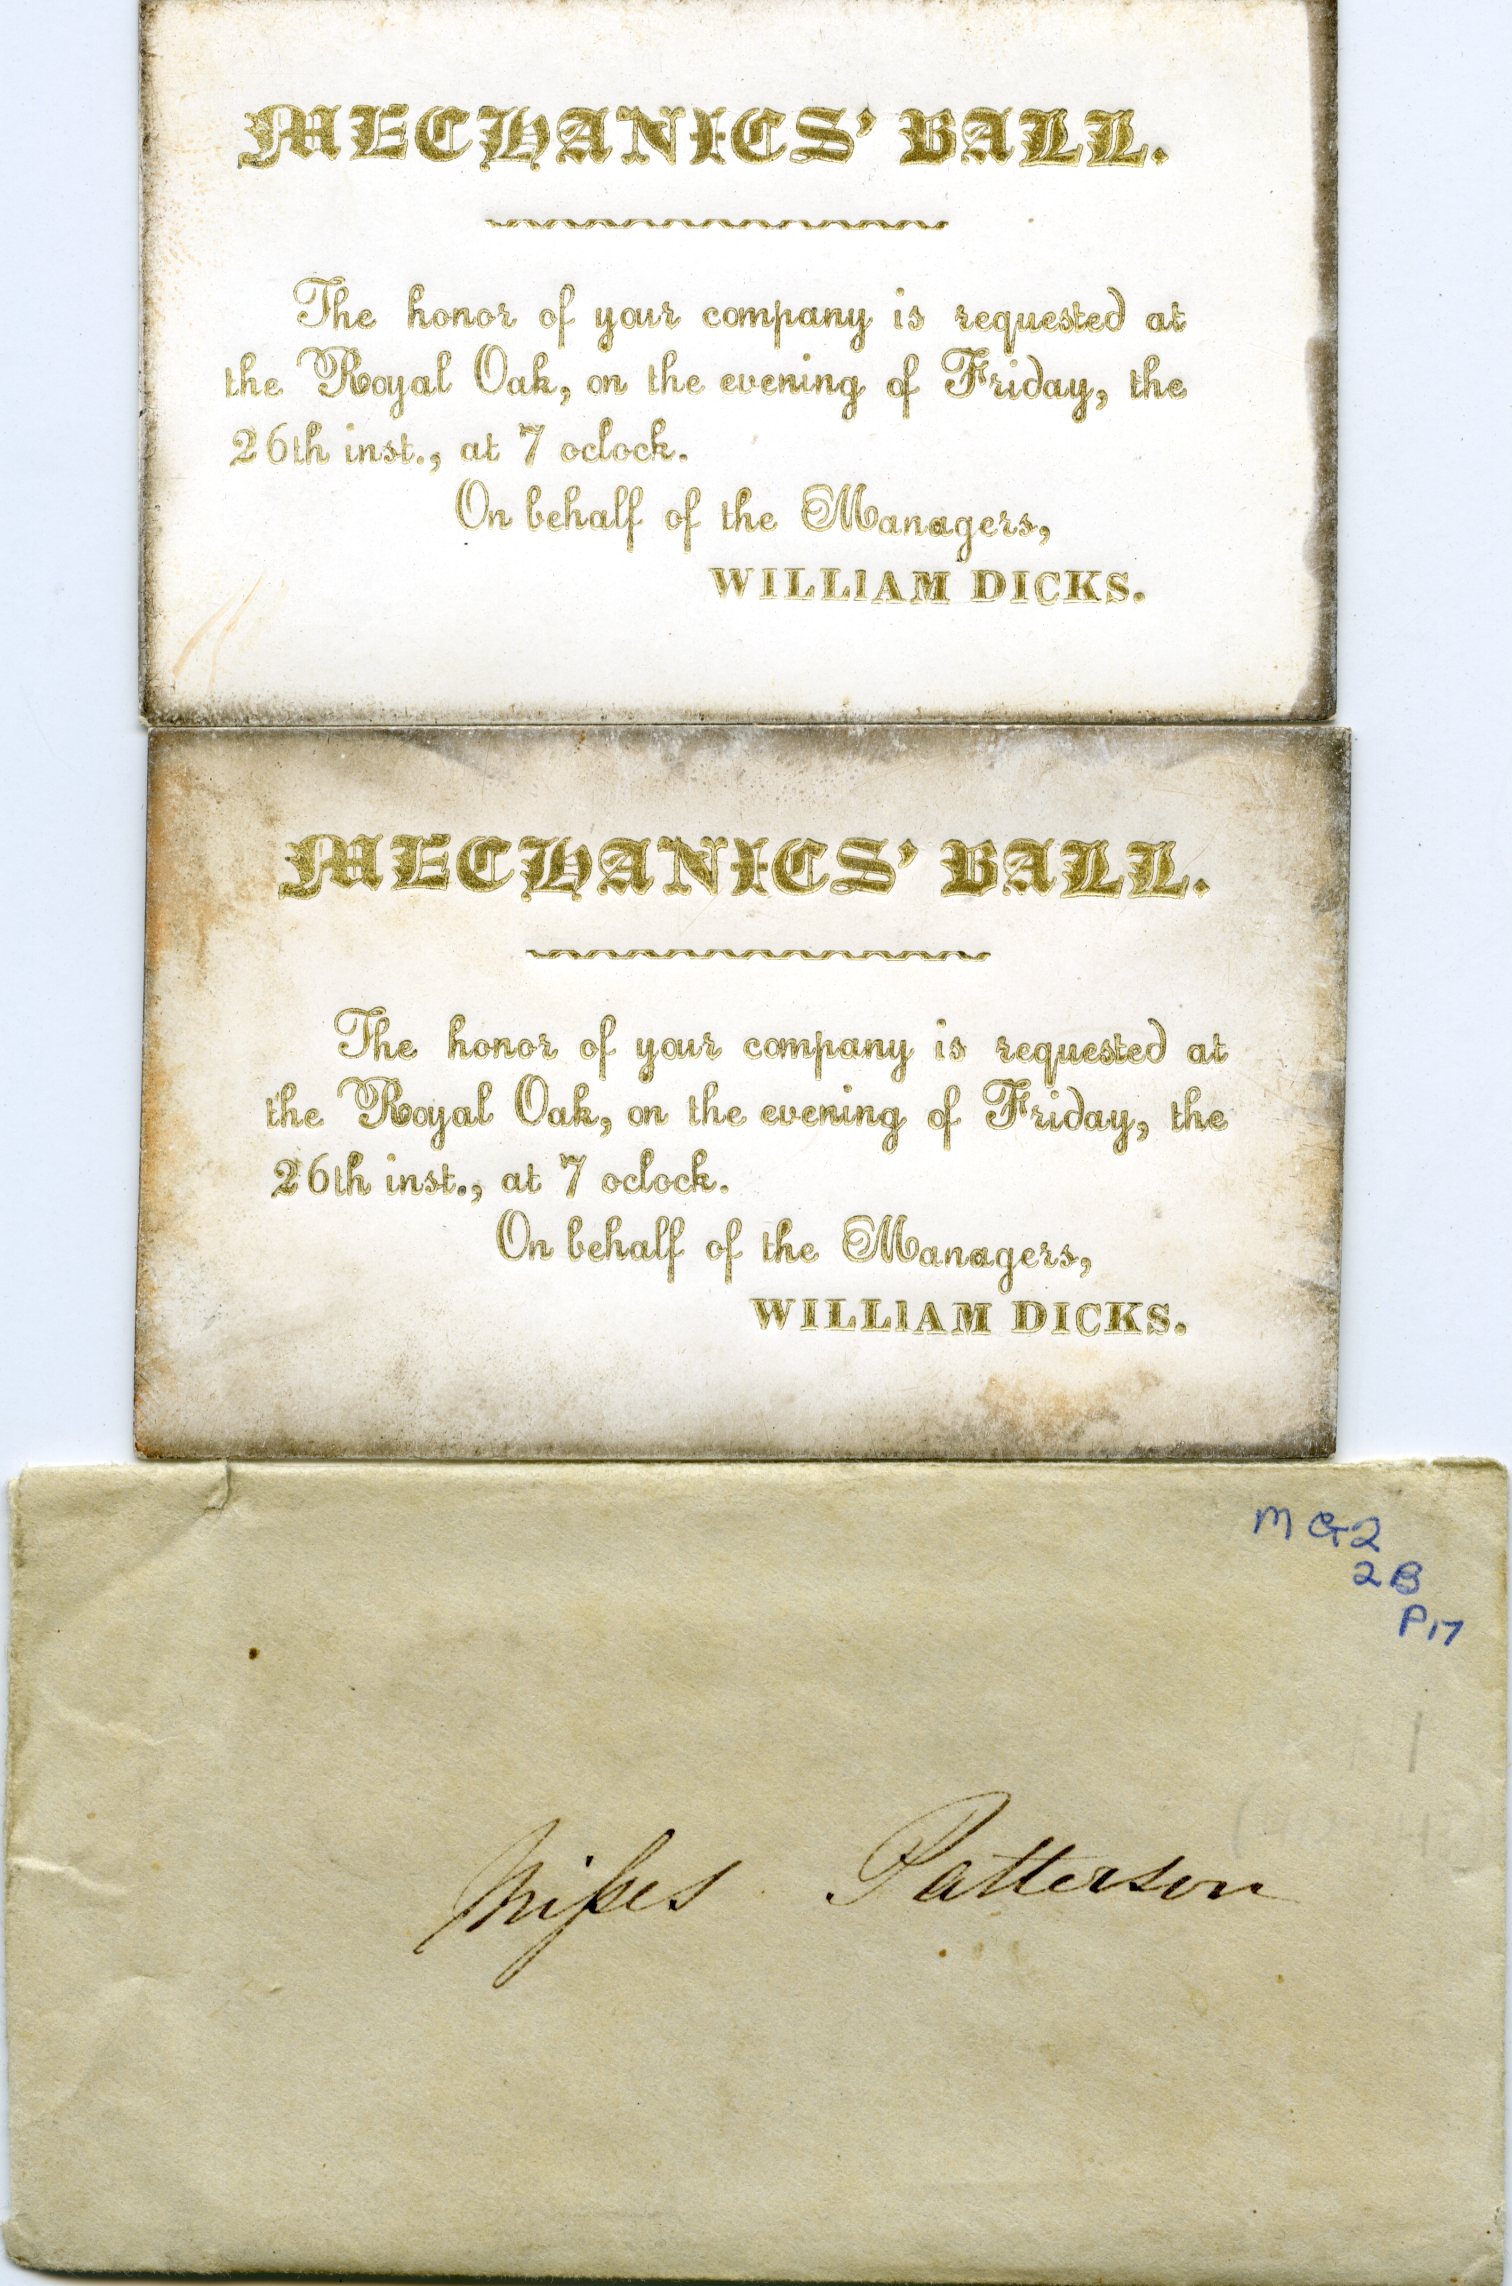 MECHANICS' BALL.
The honor of your company is requested at
the Royal Oak, on the evening of Friday, the
26th inst., at 7 oclock.
On behalf of the Managers,
WILLIAM DICKS.
MECHANICS' BALL.
The honor of your company is requested at
the Royal Oak, on the evening of Friday, the
26th inst., at 7 oclock.
On behalf of the Managers,
WILLIAM DICKS.
MG2
2B
P17
Miſses Patterson